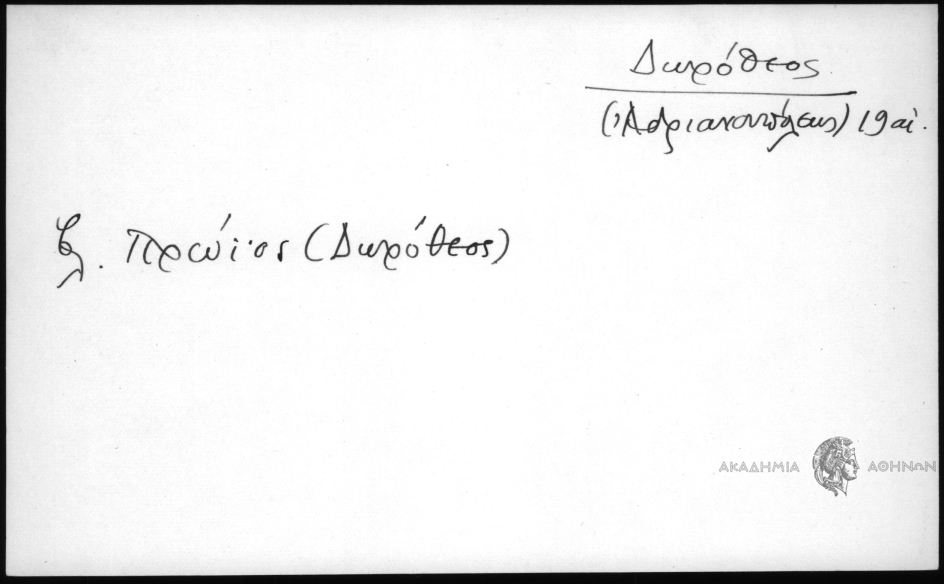 Δωρόθεος
(Ἀδριανουπόλεως) 19 αἰ.
βλ. Πρώϊος (Δωρόθεος)
ΑΚΑΔΗΜΙΑ ΑΘΗΝΩΝ